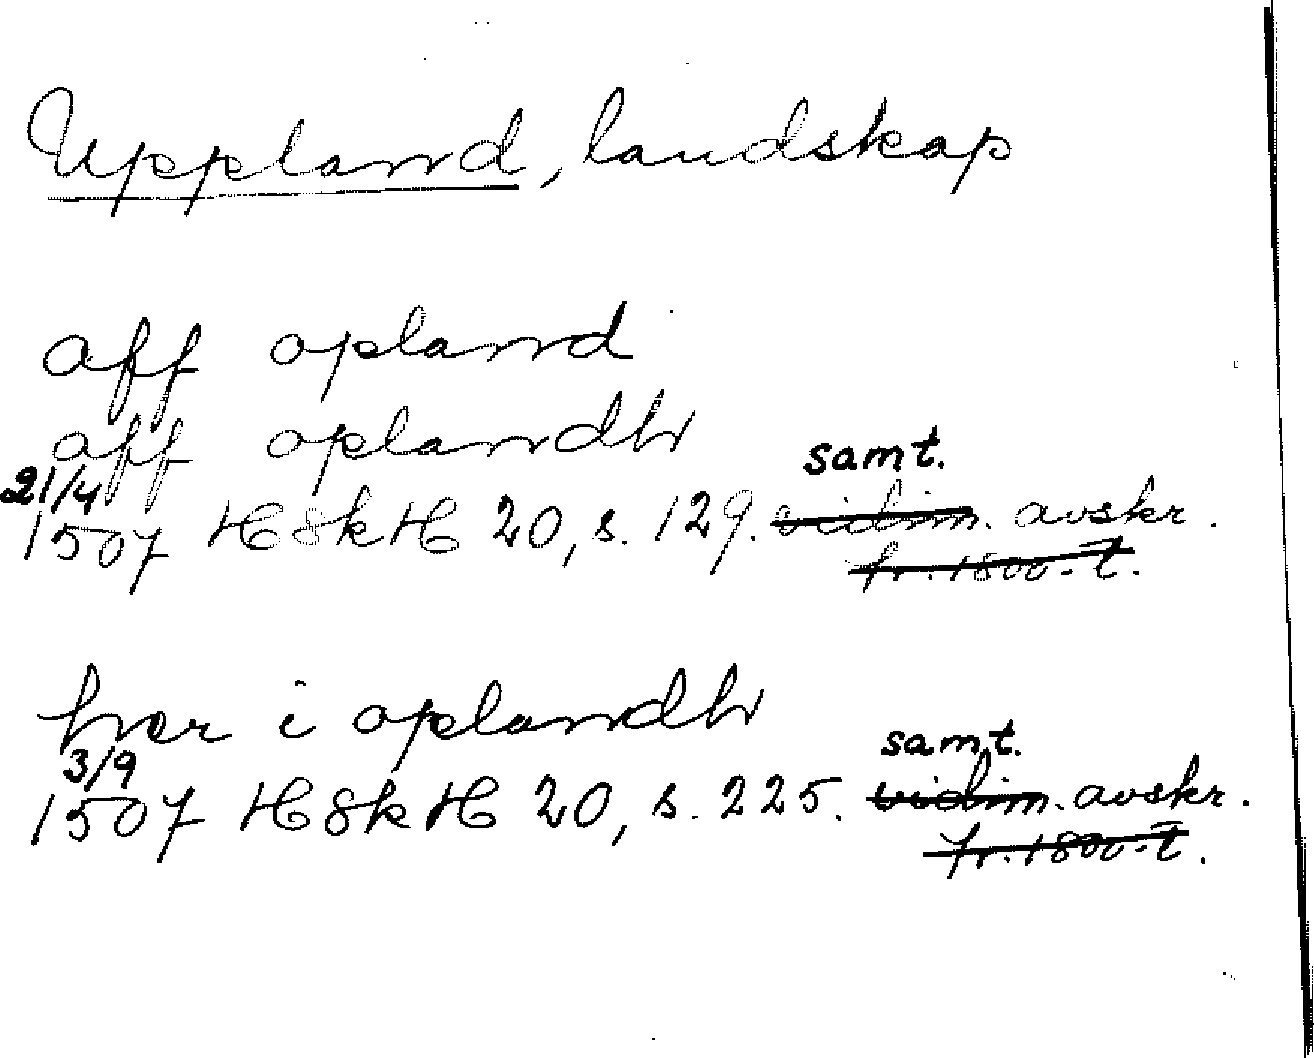 Uppland, landskap
aff opland
aff oplandh
samt.
21/4
1507 HSkH 20, s. 129. vidim. avskr.
fr. 1800-t.
hær i oplandh
samt.
3/9
1507 HSkH 20, s. 225. vidim. avskr.
fr. 1800-t.